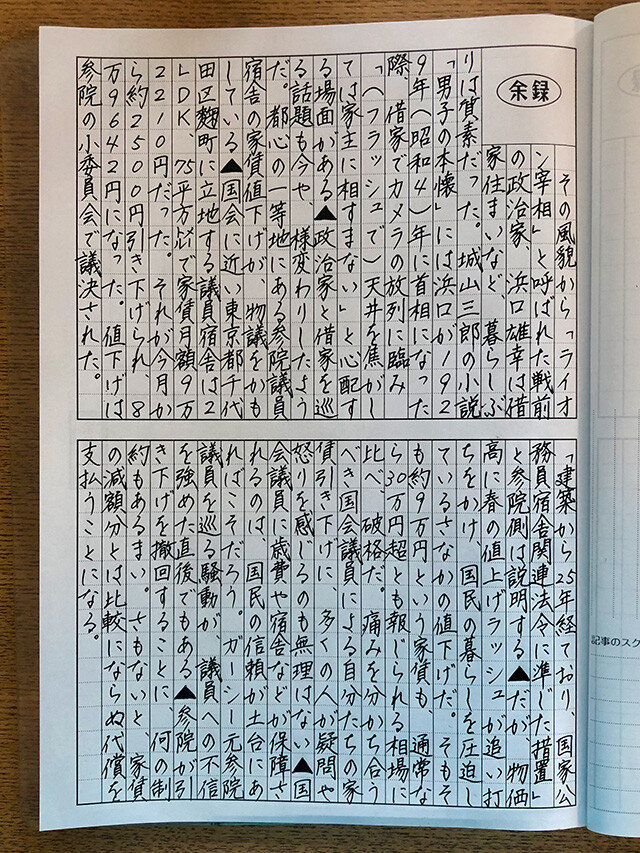 余録
その風貌から「ライオ
ン宰相」と呼ばれた戦前
の政治家、浜口雄幸は借
家住まいなど、暮らしぶ
りは質素だった。城山三郎の小説
「男子の本懐」には浜口が192
9年(昭和4)年に首相になった
際、借家でカメラの放列に臨み
「(フラッシュで)天井を焦がし
ては家主に相すまない」と心配す
る場面がある▲政治家と借家を巡
る話題も今や、様変わりしたよう
だ。都心の一等地にある参院議員
宿舎の家賃値下げが、物議をかも
している▲国会に近い東京都千代
田区麹町に立地する議員宿舎は2
LDK、75平方㍍で家賃月額9万
2210円だった。それが今月か
ら約2500円引き下げられ、8
万9642円になった。値下げは
参院の小委員会で議決された。
「建築から25年経ており、国家公
務員宿舎関連法令に準じた措置」
と参院側は説明する▲だが、物価
高に春の値上げラッシュが追い打
ちをかけ 国民の暮らしを圧迫し
ているさなかの値下げだ。そもそ
も約9万円という家賃も、通常な
ら30万円超とも報じられる相場に
比べ、破格だ。痛みを分かち合う
べき国会議員による自分たちの家
賃引き下げに、多くの人が疑問や
怒りを感じるのも無理はない▲国
会議員に歳費や宿舎などが保障さ
れるのは、国民の信頼が土台にあ
ればこそだろう。ガーシー元参院
議員を巡る騒動が、議員への不信
を強めた直後でもある▲参院が引
き下げを撤回することに、何の制
約もあるまい。さもないと、家賃
の減額分とは比較にならぬ代償を
支払うことになる。
記事のスク